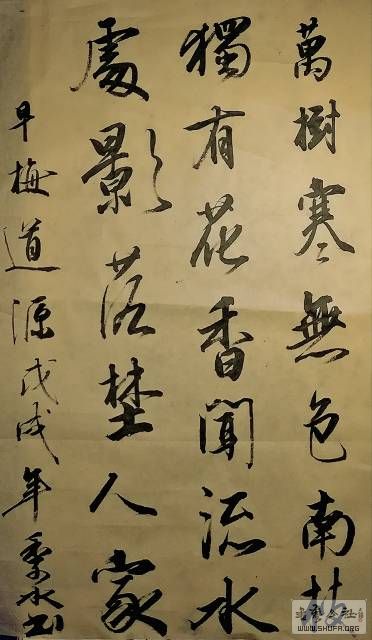 萬樹寒無色南枝
獨有花香聞流水
處影落埜人家
早梅道源戊戌年水书
WWW.SHUFA.ORG